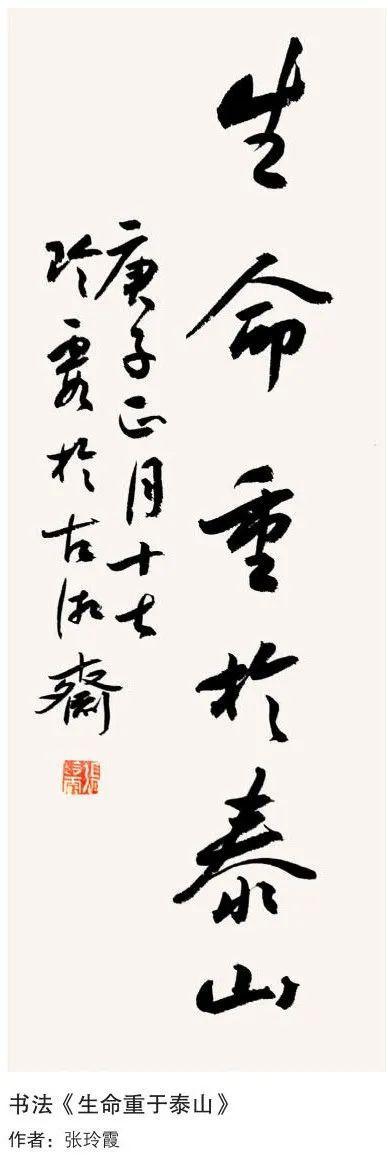 生命重於泰山
庚子正月十七
玲霞於古湘齋
书法《生命重于泰山》
作者：张玲霞